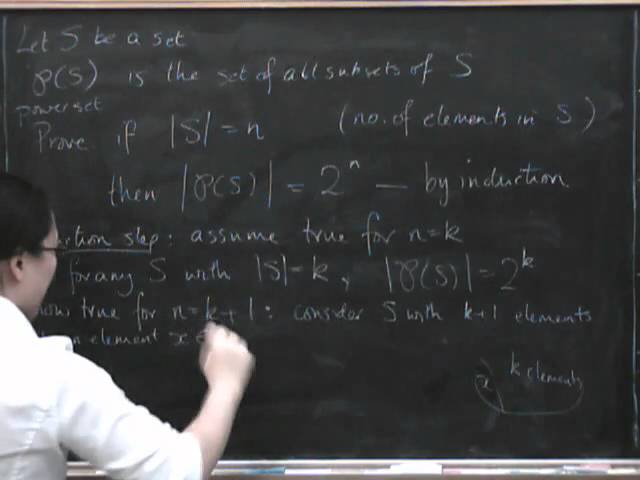 Let S be a set
℘(S) is the set of all subsets of S
power set
Prove if |S| = n (no. of elements in S)
then |℘(S)| = 2^n — by induction.
ction step: assume true for n=k
for any S with |S| = k, |℘(S)| = 2^k
how true for n=k+1: consider S with k+1 elements
an element x ∈
x k elements